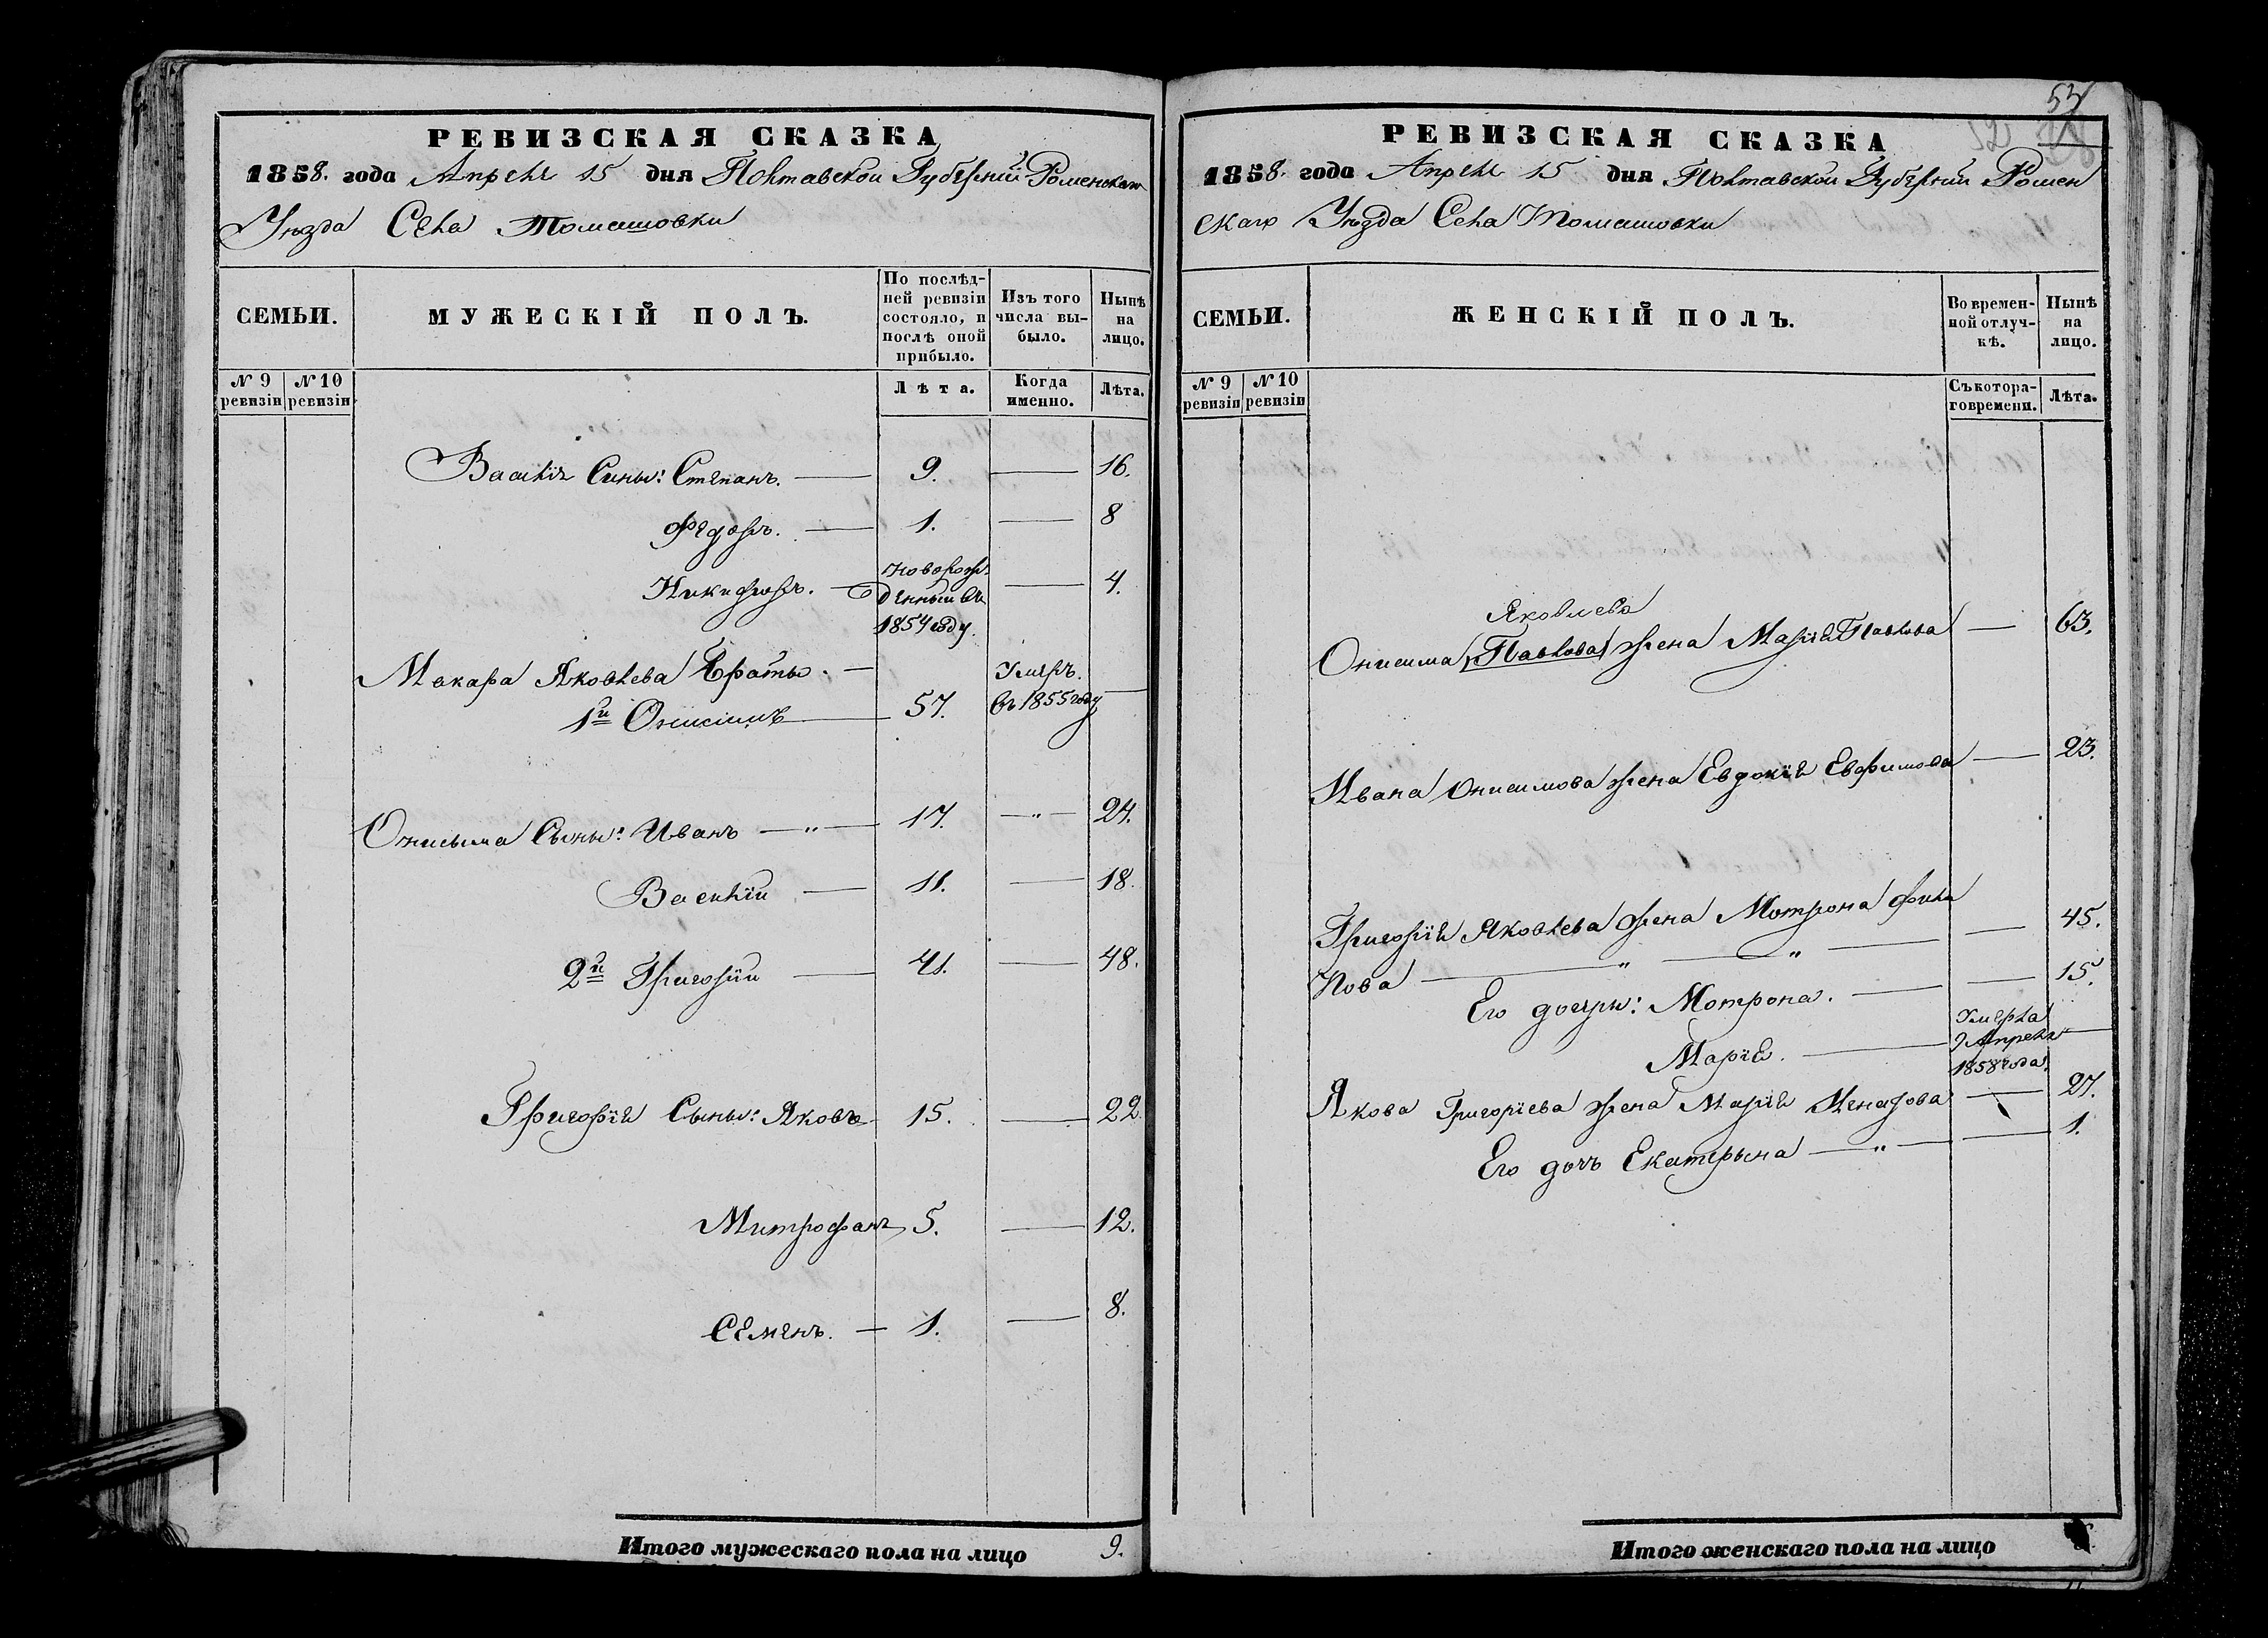 РЕВИЗСКАЯ СКАЗКА
1858. года Апреля 15 дня Полтавской Губернии Роменскаго
Уезда Села Томашовки
СЕМЬИ.
МУЖЕСКІЙ ПОЛЪ.
По послѣд-
ней ревизіи
состояло, и
послѣ оной
прибыло.
Изъ того
числа вы-
было.
Нынѣ
на
лицо.
№ 9 ревизіи
№ 10 ревизіи
Лѣта.
Когда
именно.
Лѣта.
Василія Сины: Степанъ. — 9. — 16.
Федоръ. — 1. — 8
Никифоръ. — новорож-
денный въ — 4.
1854 году.
Макара Яковлева Браты. —
1й Онисимъ — 57. Умеръ.
въ 1855 году —
Онисыма Сыны: Иванъ — " — 17. — " — 24.
Василіи — 11. — 18.
2й Григоріи — 41. — 48.
Григорія Сыны: Яковъ — 15. — 22.
Митрофанъ 5. — 12.
Семенъ. — 1. — 8.
Итого мужескаго пола на лицо 9.
53
52
РЕВИЗСКАЯ СКАЗКА
1858. года Апреля 15 дня Полтавской Губернии Ромен
скаго Уезда Села Томашовки
СЕМЬИ.
ЖЕНСКІЙ ПОЛЪ.
Во времен-
ной отлуч-
кѣ.
Нынѣ
на
лицо.
№ 9 ревизіи
№ 10 ревизіи
Съ котора-
го времени.
Лѣта.
Яковлева
Онисима Павлова жена Марія Павлова — 63.
Ивана Онисимова жена Евдокія Евфимова — 23.
Григорія Яковлева жена Мотрона Фили
пова — " — " — — 45.
Его дочери: Мотрона. — — 15.
Марія. — Умерла
9 Апреля —
1858 года.
Якова Григоріева жена Марія Назарова — 27.
Его дочъ Екатерына — " — — 1.
Итого женскаго пола на лицо